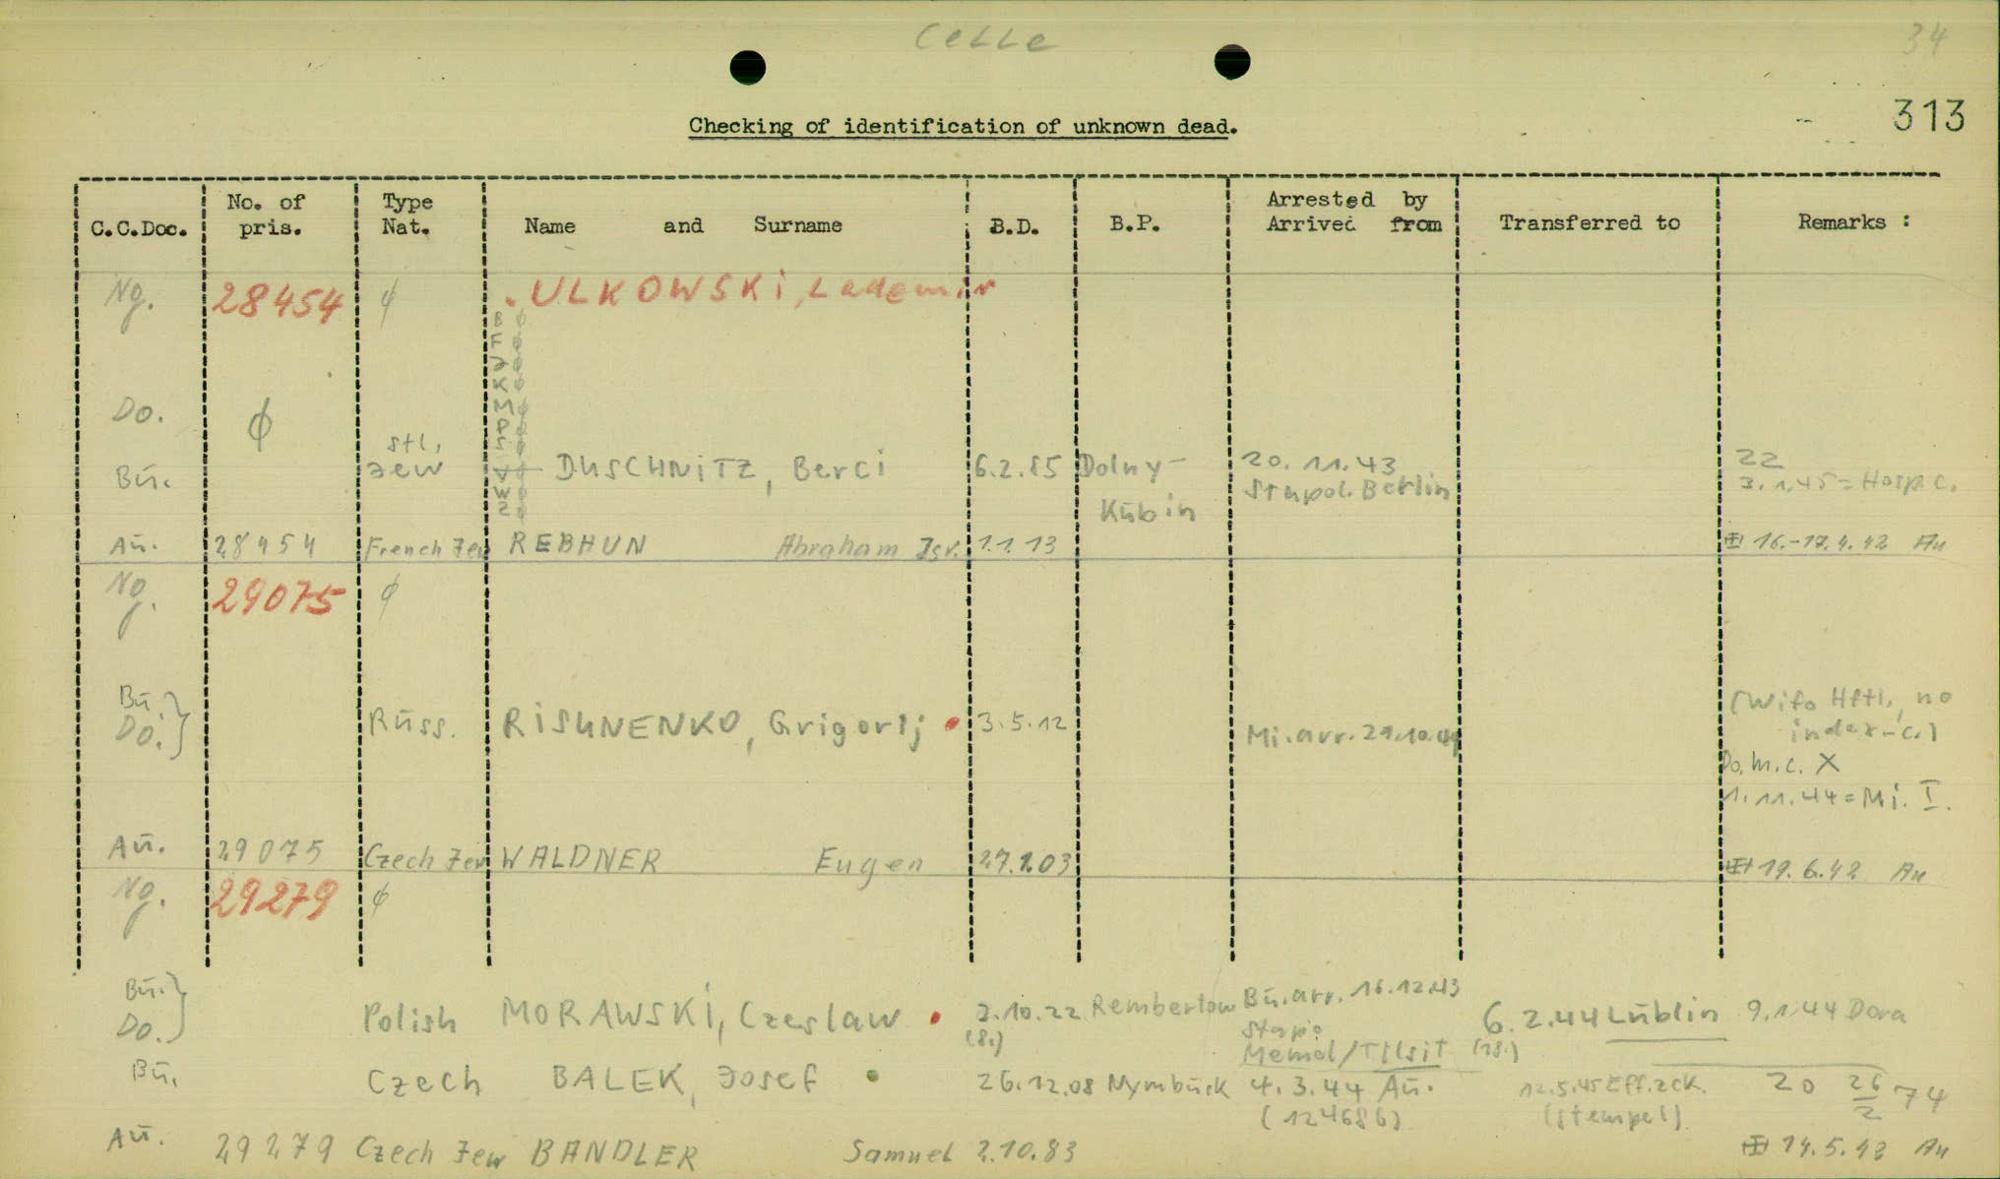 Celle
34
313
Checking of identification of unknown dead.
C.C.Doc. No. of pris. Type Nat. Name and Surname B.D. B.P. Arrested by Arrived from Transferred to Remarks :
Ng. 28454 ∅ . ULKOWSKI, Lademir
B ∅
F
J
K
M
P
S
V
W
Z
Do. ∅
Bü. stl. Jew DUSCHNITZ, Berci 6.2.85 Dolny- Kubin 20.11.43 Stapol. Berlin 22 3.1.45 = Hosp c.
Aü. 28454 French Jew REBHUN Abraham Isr. 1.1.13 16.-17.4.42 Au
Ng. 29075 ∅
Bü. Do. } Russ. RISHNENKO, Grigorij 3.5.12 Mi.arr. 29.10.44 (Wifo Hftl., no index-c.)
Do.m.c. X
1.11.44 = Mi. I.
Aü. 29075 Czech Jew WALDNER Eugen 27.1.03 19.6.42 Au
Ng. 29279 ∅
Bü. Do. } Polish MORAWSKI, Czeslaw 2.10.22 (8.) Rembertow Bü.arr. 16.12.43 Stapo Memel/Tilsit 6.2.44 Lüblin (18.) 9.1.44 Dora
Bü. Czech BALEK, Josef 26.12.08 Nymbürk 4.3.44 Aü. (124686) 12.5.45 Eff.zck. (Stempel) 20 26/2 74
Aü. 29279 Czech Jew BANDLER Samuel 2.10.83 14.5.42 Au